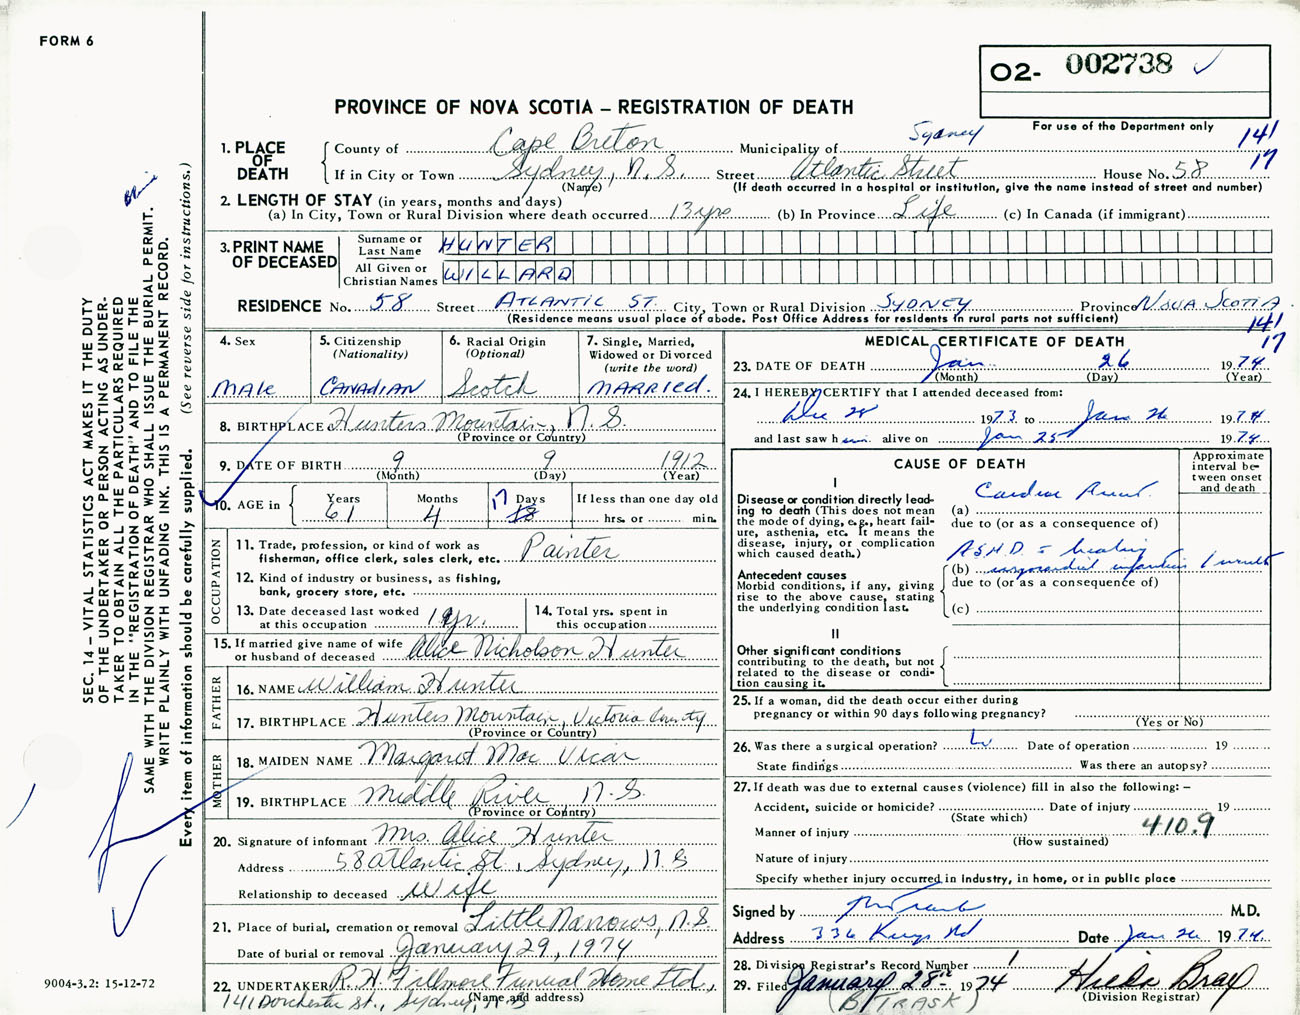 FORM 6
O2- 002738
PROVINCE OF NOVA SCOTIA – REGISTRATION OF DEATH
For use of the Department only
141
17
1. PLACE OF DEATH
County of Cape Breton Municipality of Sydney
If in City or Town Sydney, N.S. Street Atlantic Street House No. 58
(Name) (If death occurred in a hospital or institution, give the name instead of street and number)
2. LENGTH OF STAY (in years, months and days)
(a) In City, Town or Rural Division where death occurred 13 yrs (b) In Province Life (c) In Canada (if immigrant)
3. PRINT NAME OF DECEASED
Surname or Last Name HUNTER
All Given or Christian Names WILLARD
RESIDENCE No. 58 Street ATLANTIC ST. City, Town or Rural Division SYDNEY Province NOVA SCOTIA
(Residence means usual place of abode. Post Office Address for residents in rural parts not sufficient)
141
17
4. Sex
MALE
5. Citizenship
(Nationality)
CANADIAN
6. Racial Origin
(Optional)
Scotch
7. Single, Married,
Widowed or Divorced
(write the word)
MARRIED.
8. BIRTHPLACE Hunters Mountain, N.S.
(Province or Country)
9. DATE OF BIRTH 9 9 1912
(Month) (Day) (Year)
10. AGE in Years Months Days If less than one day old
61 4 17 18 hrs. or min.
OCCUPATION
11. Trade, profession, or kind of work as
fisherman, office clerk, sales clerk, etc. Painter
12. Kind of industry or business, as fishing,
bank, grocery store, etc.
13. Date deceased last worked
at this occupation 1 yr.
14. Total yrs. spent in
this occupation
15. If married give name of wife
or husband of deceased Alice Nicholson Hunter
FATHER
16. NAME William Hunter
17. BIRTHPLACE Hunters Mountain, Victoria County
(Province or Country)
MOTHER
18. MAIDEN NAME Margaret Mac Vicar
19. BIRTHPLACE Middle River N.S.
(Province or Country)
20. Signature of informant Mrs. Alice Hunter
Address 58 Atlantic St., Sydney, N.S
Relationship to deceased Wife
21. Place of burial, cremation or removal Little Narrows, N.S.
Date of burial or removal January 29, 1974
22. UNDERTAKER R.H. Fillmore Funeral Home Ltd.,
141 Dorchester St., Sydney, N.S
(Name and address)
MEDICAL CERTIFICATE OF DEATH
23. DATE OF DEATH Jan. 26 1974
(Month) (Day) (Year)
24. I HEREBY CERTIFY that I attended deceased from:
Dec 28 1973 to Jan 26 1974
and last saw him alive on Jan 25 1974
CAUSE OF DEATH
Approximate interval between onset and death
I
Disease or condition directly leading to death (This does not mean the mode of dying, e.g., heart failure, asthenia, etc. It means the disease, injury, or complication which caused death.)
(a) Cardiac Arrest.
due to (or as a consequence of)
Antecedent causes
Morbid conditions, if any, giving rise to the above cause, stating the underlying condition last.
A.S.H.D. healing
(b) myocardial infarction 1 month
due to (or as a consequence of)
(c)
II
Other significant conditions
contributing to the death, but not related to the disease or condition causing it.
25. If a woman, did the death occur either during
pregnancy or within 90 days following pregnancy?
(Yes or No)
26. Was there a surgical operation? Date of operation 19
State findings Was there an autopsy?
27. If death was due to external causes (violence) fill in also the following: –
Accident, suicide or homicide? Date of injury 19
(State which)
Manner of injury 410.9
(How sustained)
Nature of injury
Specify whether injury occurred in industry, in home, or in public place
Signed by M.D.
Address 336 Kings Rd Date Jan 26 1974.
28. Division Registrar's Record Number 1
29. Filed January 28th 1974 Hilda Bray
(B TRASK) (Division Registrar)
SEC. 14 – VITAL STATISTICS ACT MAKES IT THE DUTY
OF THE UNDERTAKER OR PERSON ACTING AS UNDER-
TAKER TO OBTAIN ALL THE PARTICULARS REQUIRED
IN THE "REGISTRATION OF DEATH" AND TO FILE THE
SAME WITH THE DIVISION REGISTRAR WHO SHALL ISSUE THE BURIAL PERMIT.
WRITE PLAINLY WITH UNFADING INK. THIS IS A PERMANENT RECORD.
Every item of information should be carefully supplied. (See reverse side for instructions.)
9004-3.2: 15-12-72